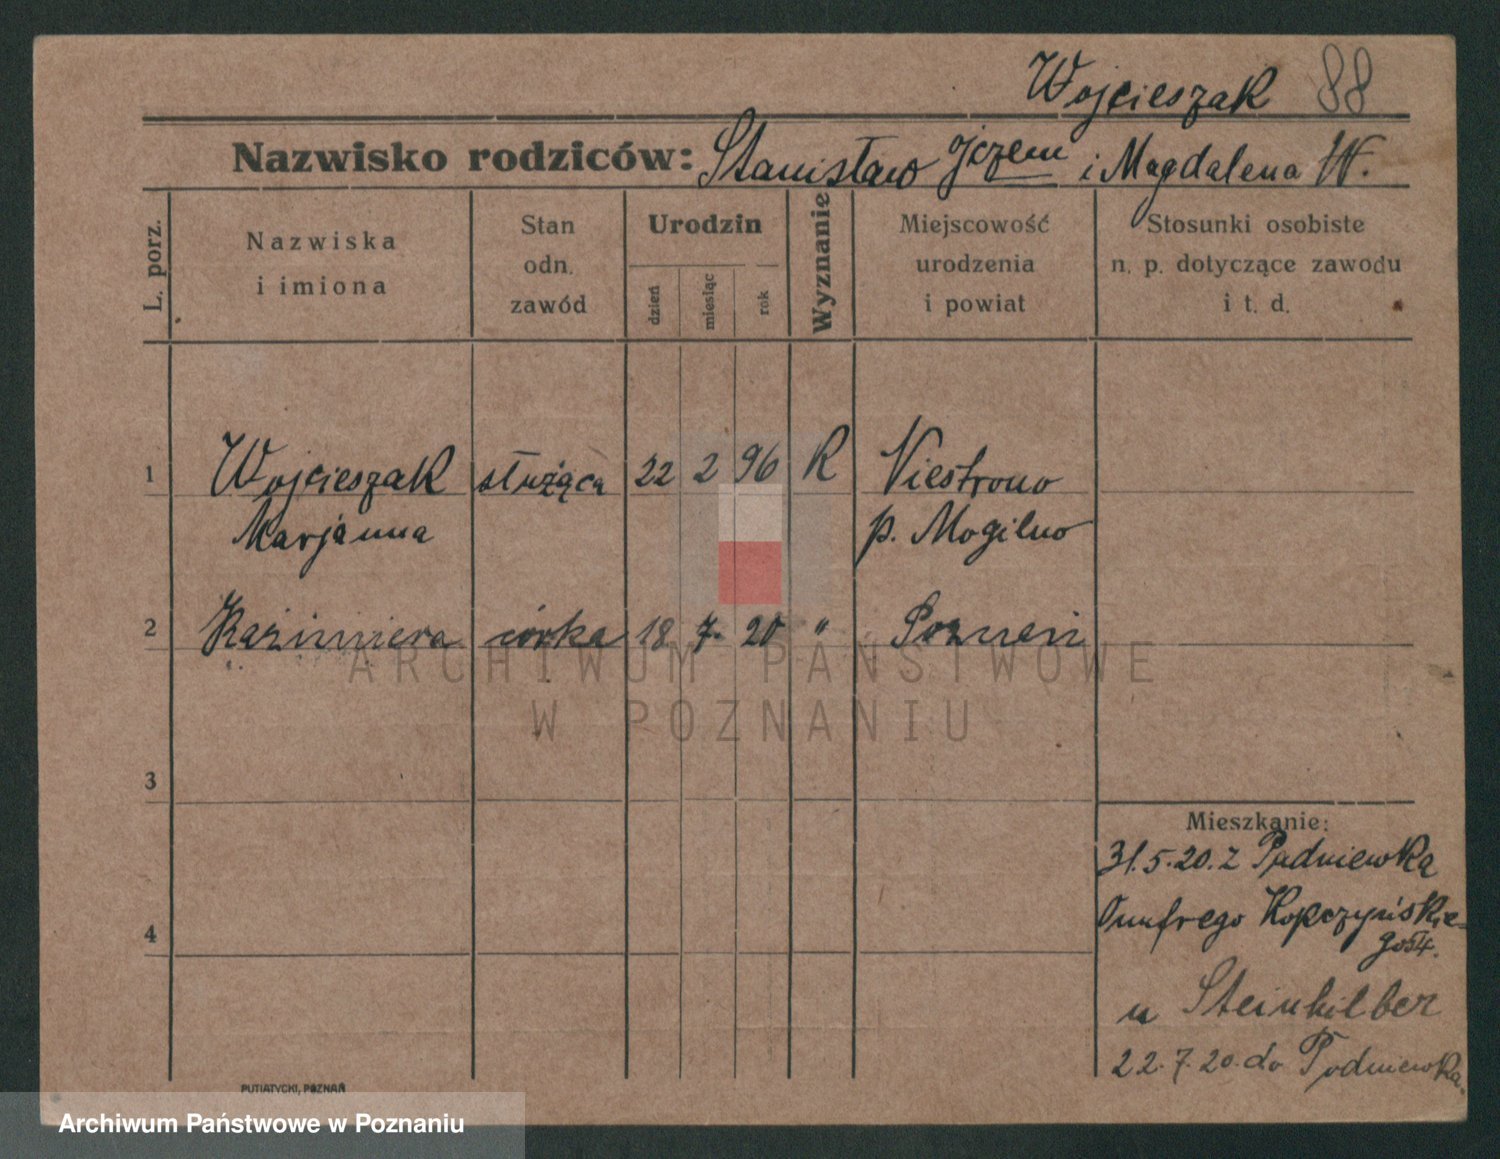 Wojcieszak 88
Nazwisko rodziców: Stanisław i Magdalena W.
L. porz.
Nazwiska
i imiona
Stan
odn.
zawód
Urodzin
dzień
miesiąc
rok
Wyznanie
Miejscowość
urodzenia
i powiat
Stosunki osobiste
n. p. dotyczące zawodu
i t. d.
1 Wojcieszak służąca 22 2 96 R Niestrono
Marjanna p. Mogilno
2 Kazimiera córka 18 7. 20 " Poznań
ARCHIWUM PAŃSTWOWE
W POZNANIU
3
4
Mieszkanie:
31.5.20. z Padniewka
Onufrego Kopczyńskie-
go
u Steinhilber
22.7.20. do Podniewka.
PUTIATYCKI, POZNAŃ
Archiwum Państwowe w Poznaniu